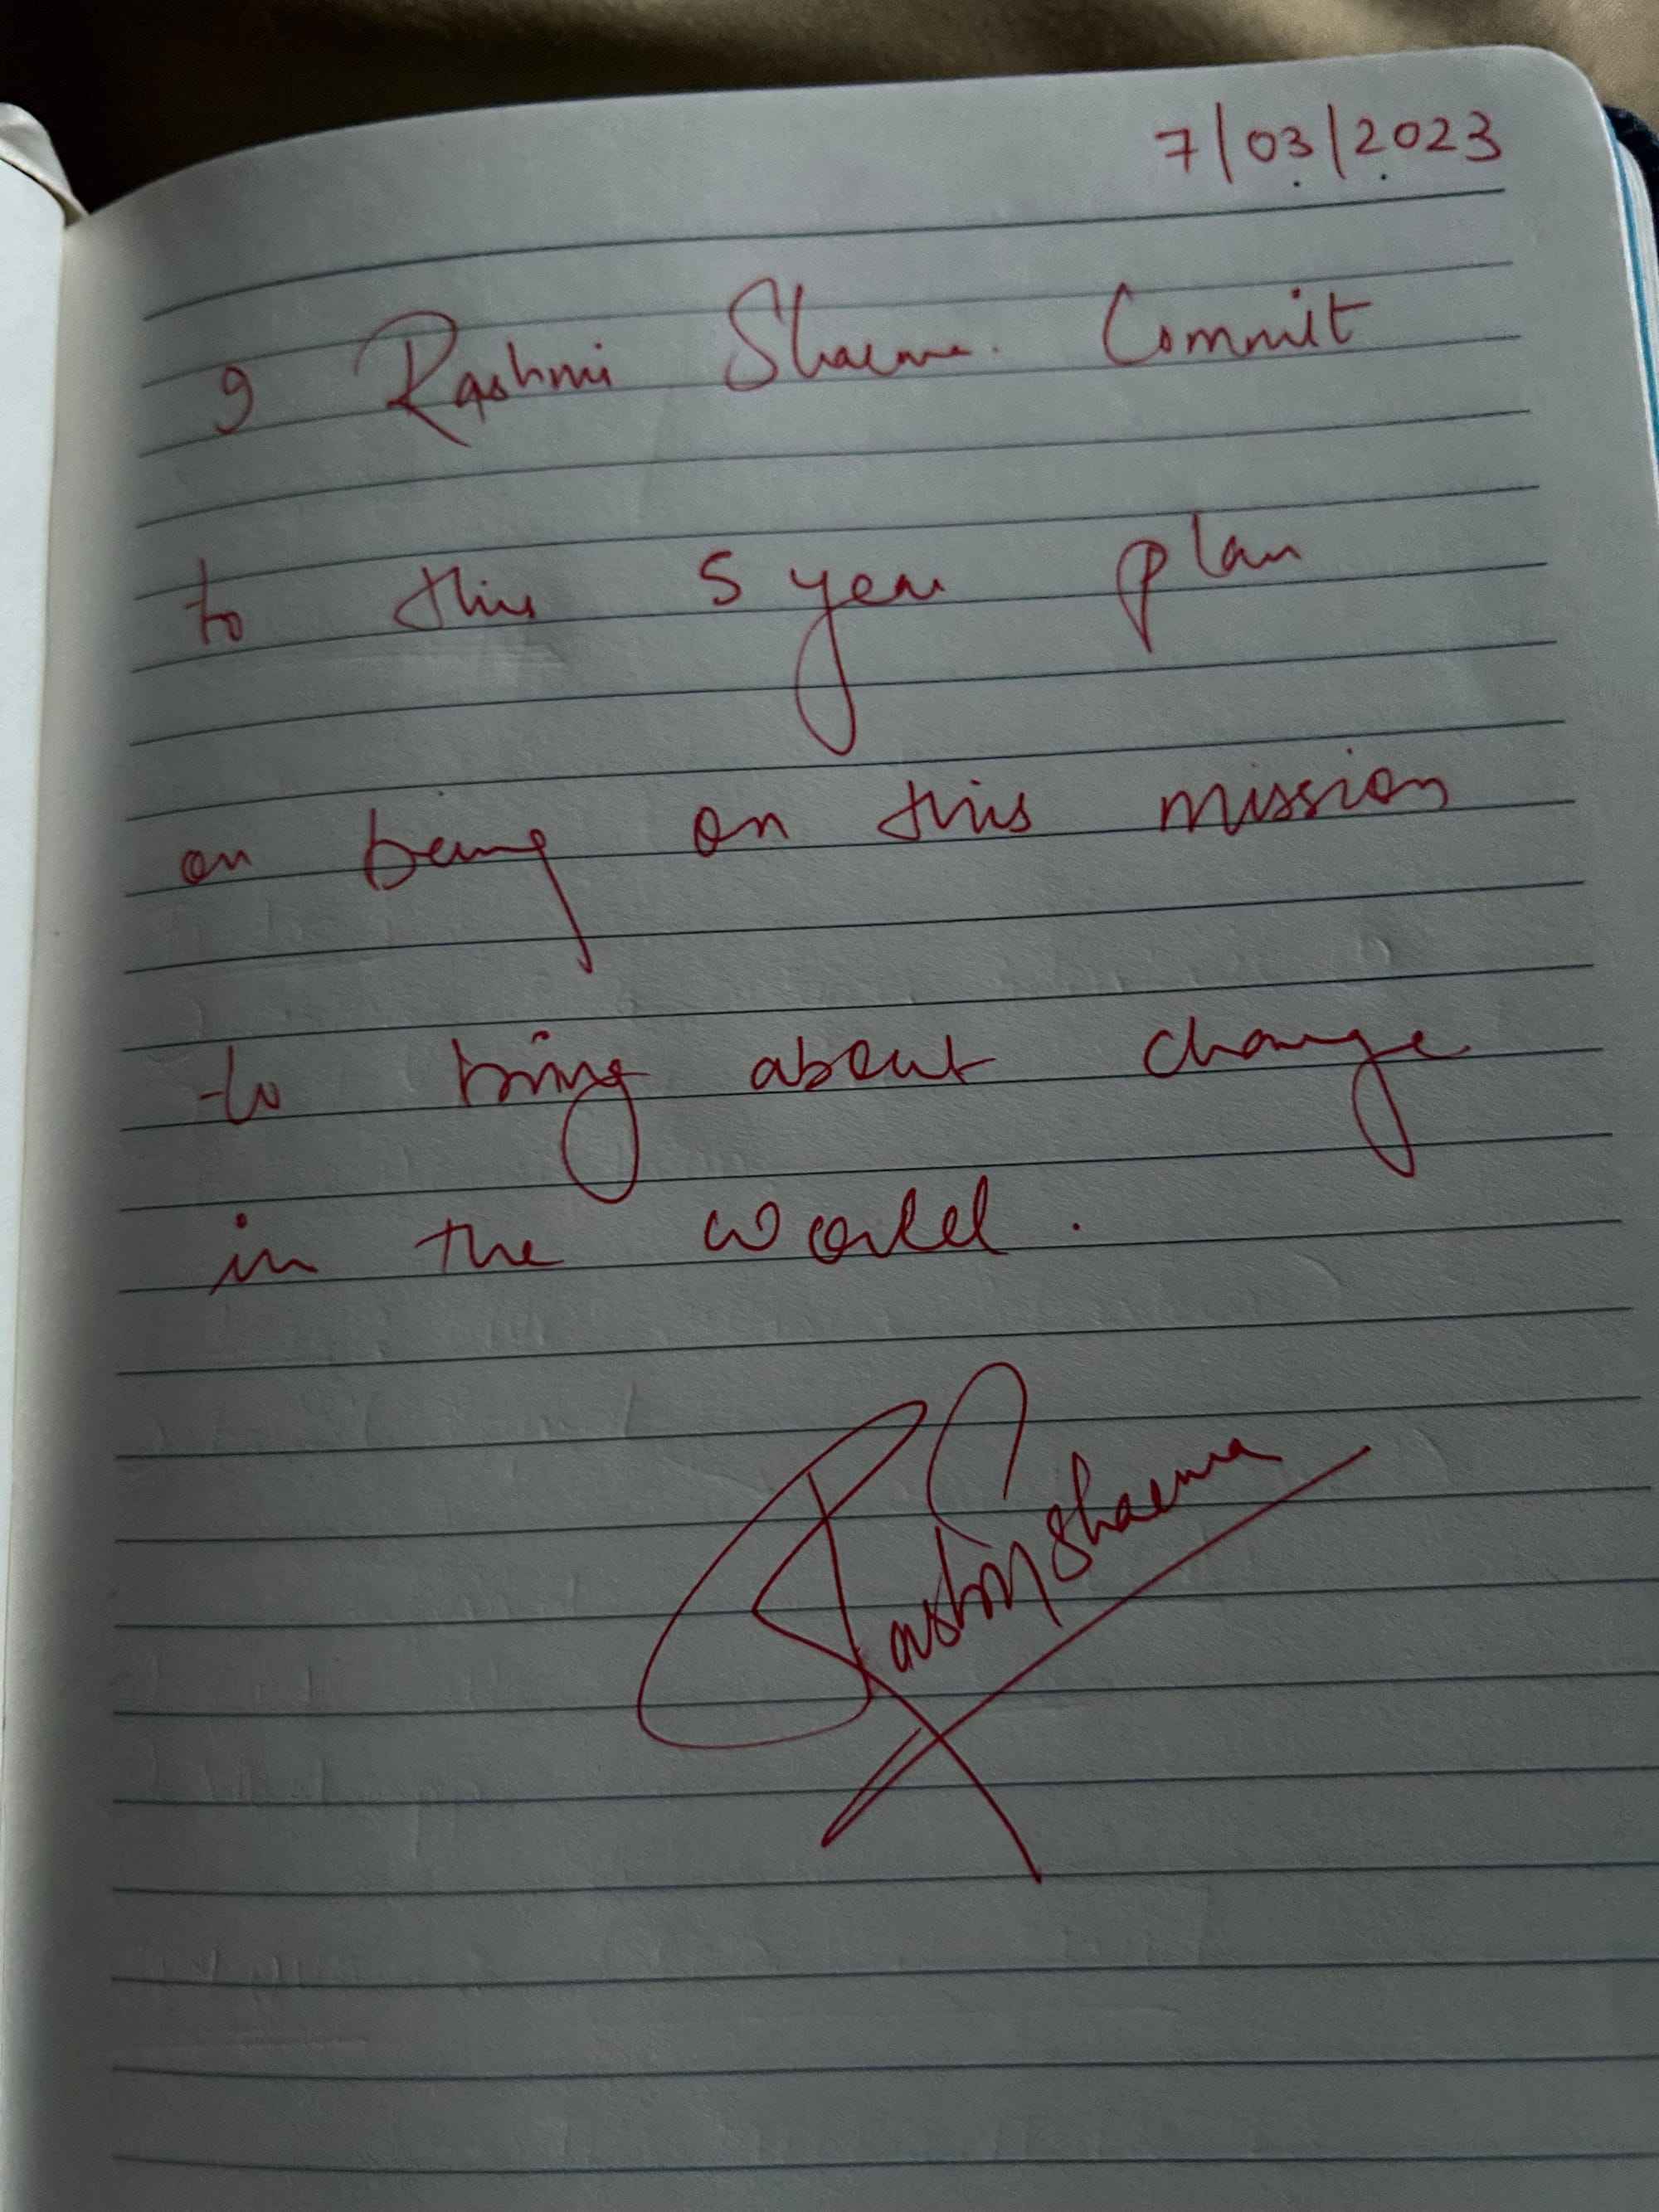 7/03/2023
I Rashmi Sharma. Commit
to this 5 year plan
on being on this mission
to bring about change
in the world.
Rashmi Sharma